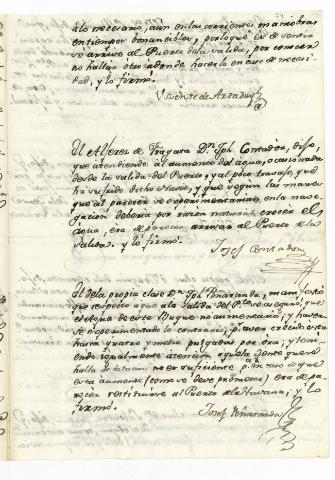 á lo necesario, aun en las corrientes maniobras
en tiempos bonancibles, por lo que es de sentir
se arrive al Puerto dela salida, por conocer
no hallar otro adonde hacerlo en caso de necesi
dad, y lo firmó.
Vicente de
El Alferez de Fragata Dn. Jph Contador, dijo,
que atendiendo al aumento del agua, ocasionada
desde la salida del Puerto, y al poco travajo, que
ha sufrido dicho Navio, y que segun las mareas
que al parecer se experimentarian en la nave
gacion deberia por razon natural crecer el
agua, era de parecer arrivar al Puerto de la
salida. y lo firmó.
Josef Contador
El dela propia clase Dn. Jph. Peñaranda, manifestó
que á la salida del Pto. se aseguró, que
el agua de este Buque no aumentaria, y haver
se experimentado lo contrario, pues en crecido esta
hasta quatro y media pulgadas por ora; y teni
endo igualmente atencion á que la Gente que se
halla de dotacion no es suficiente p. un caso de que
esta aumente (como se deve promeser) era de pa
recer restituirse al Puerto de la Havana, y lo
firmó.
Josef Peñaranda